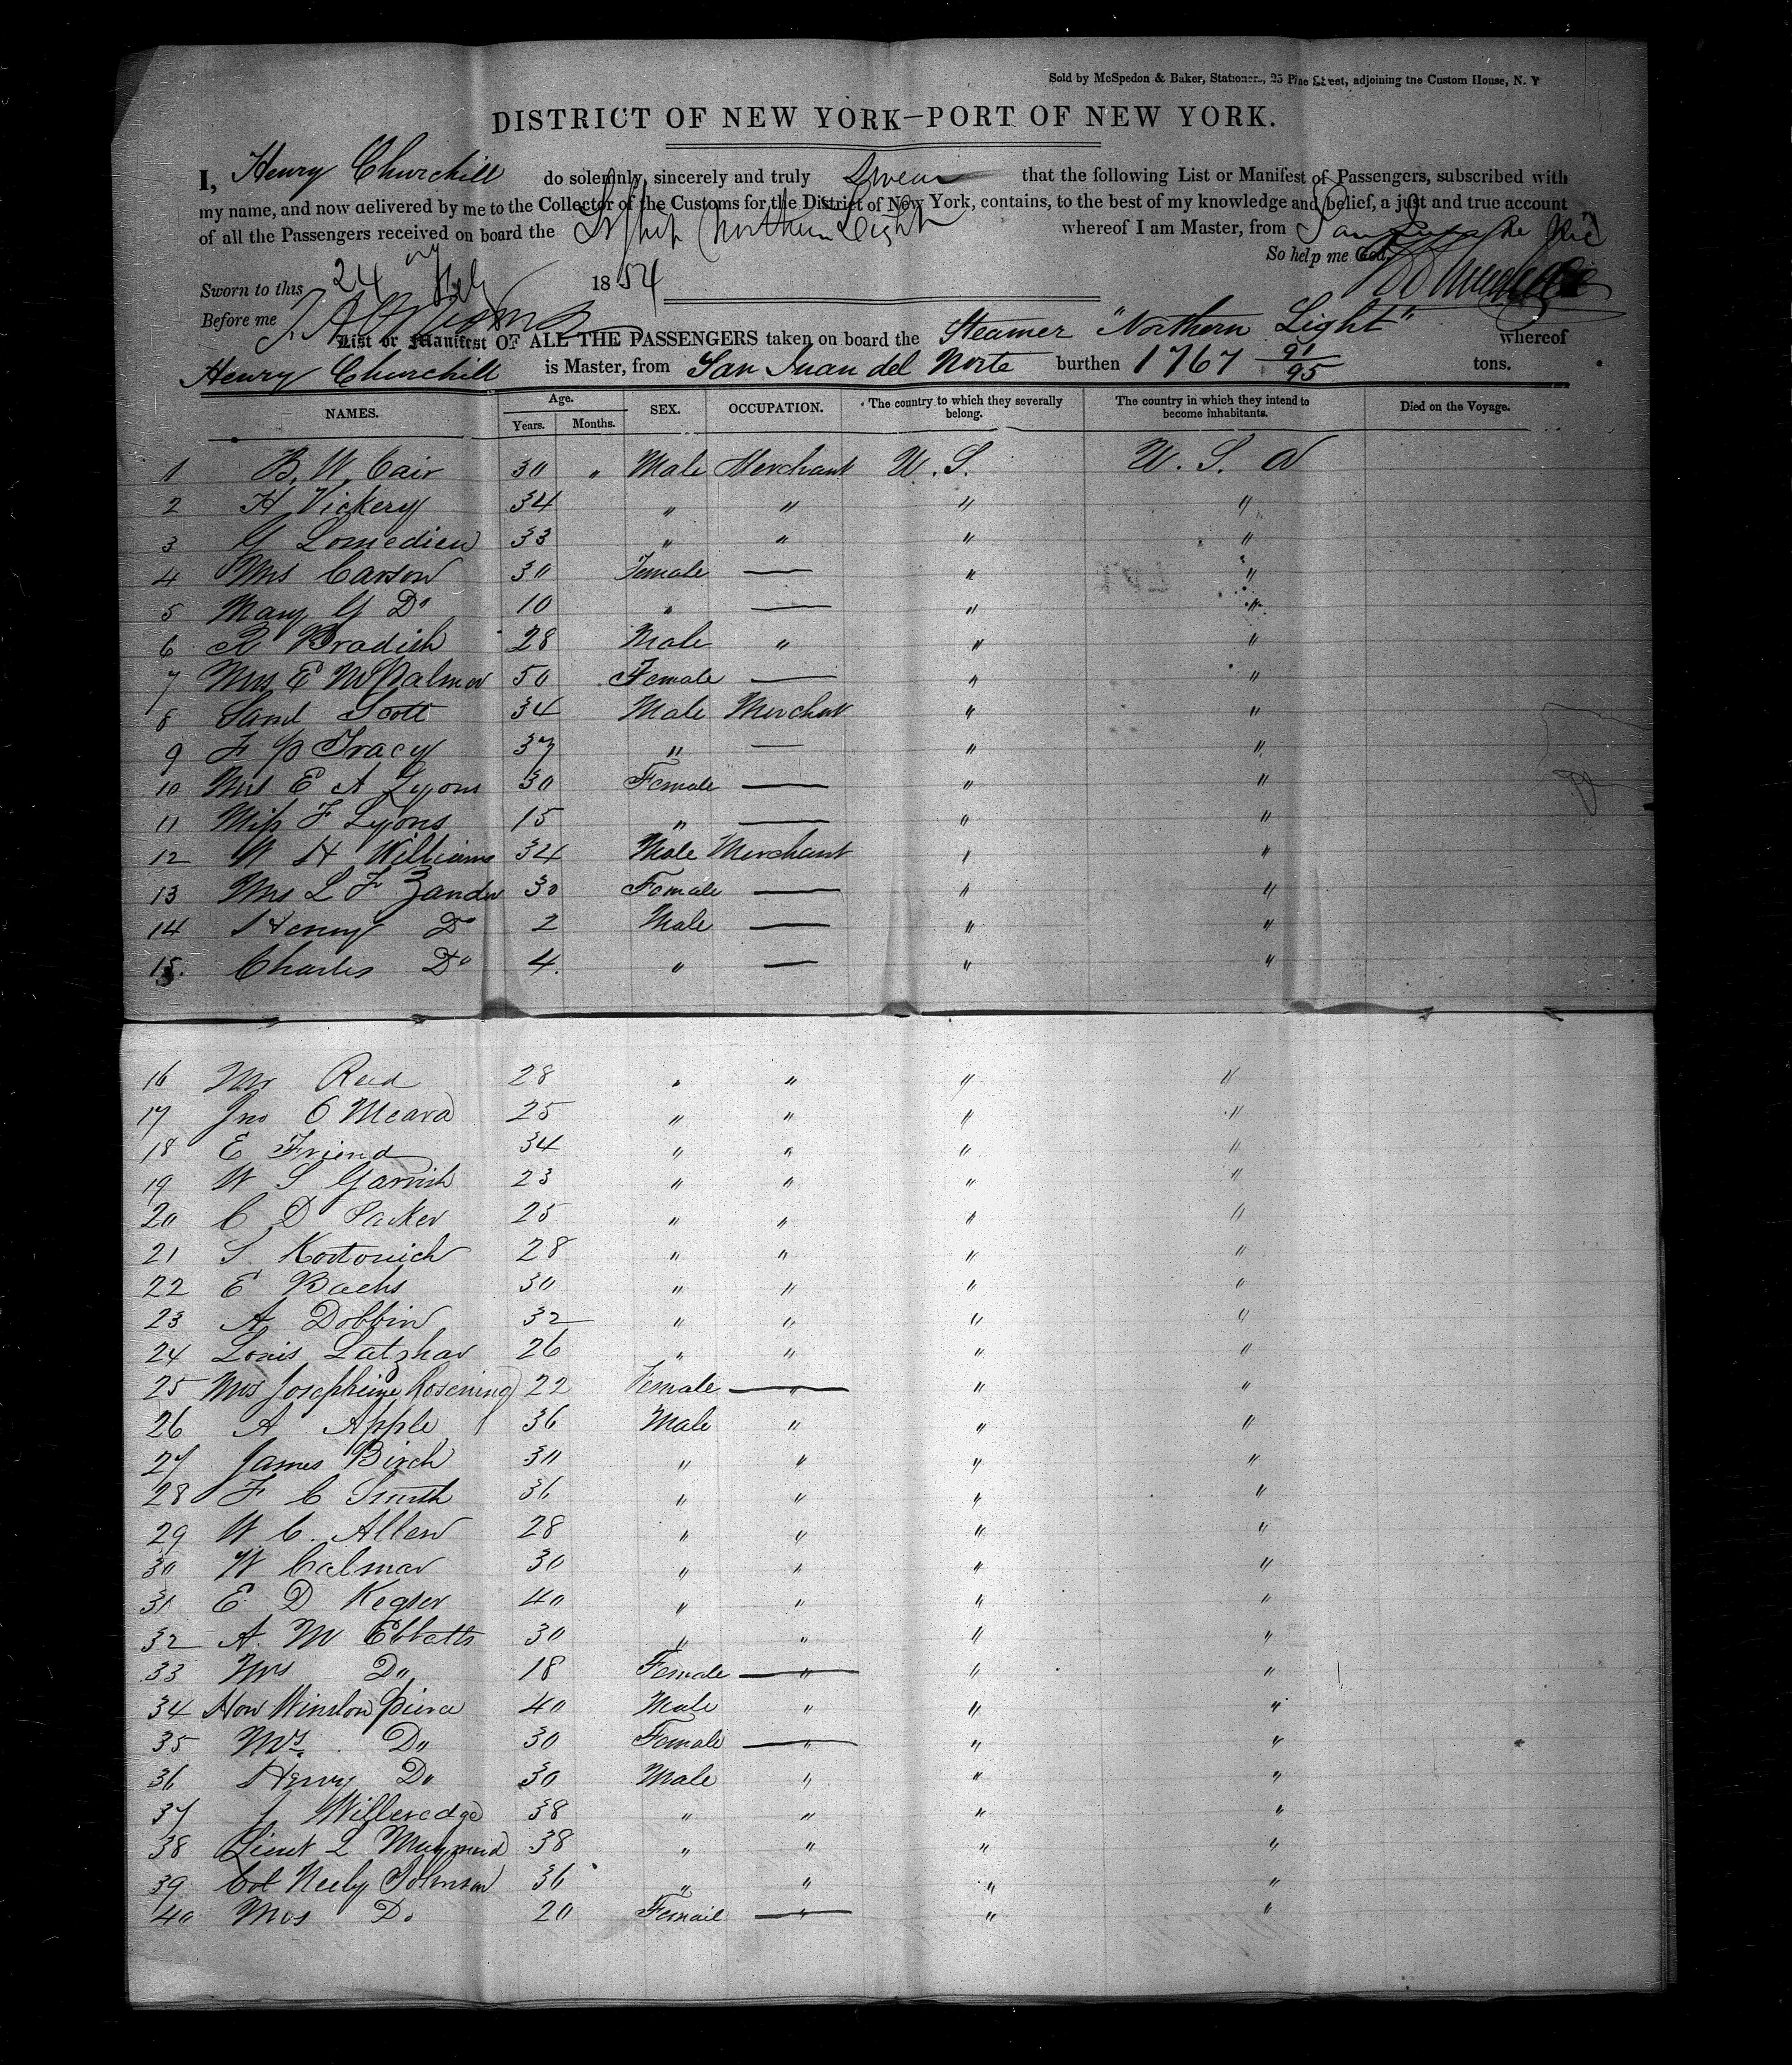 Sold by McSpedon & Baker, Stationers, 25 Pine Street, adjoining the Custom House, N. Y
DISTRICT OF NEW YORK—PORT OF NEW YORK.
I, Henry Churchill do solemnly, sincerely and truly Swear that the following List or Manifest of Passengers, subscribed with
my name, and now delivered by me to the Collector of the Customs for the District of New York, contains, to the best of my knowledge and belief, a just and true account
of all the Passengers received on board the StShip Northern Light whereof I am Master, from San Juan
So help me God,
Sworn to this 24 1854
Before me
List or Manifest OF ALL THE PASSENGERS taken on board the Steamer "Northern Light" whereof
Henry Churchill is Master, from San Juan del Norte burthen 1767 91/95 tons.
NAMES. Age. Years. Months. SEX. OCCUPATION. The country to which they severally belong. The country in which they intend to become inhabitants. Died on the Voyage.
1 B. W. Cair 30 " Male Merchant U. S. U. S. A
2 H Vickery 34 " " " "
3 G Lomedieu 33 " " " "
4 Mrs Carson 30 Female — " "
5 Mary G Do 10 " — " "
6 R Bradish 28 Male " " "
7 Mrs E M Palmer 50 Female — " "
8 Saml Scott 34 Male Merchant " "
9 F P Tracy 37 " — " "
10 Mrs E A Lyons 30 Female — " "
11 Miss F Lyons 15 " — " "
12 W H Williams 34 Male Merchant " "
13 Mrs L F Zander 30 Female — " "
14 Henry Do 2 Male — " "
15. Charles Do 4. " — " "
16 Mr Reed 28 " " " "
17 Jno O Meara 25 " " " "
18 E Friend 34 " " " "
19 W S Garrish 23 " " " "
20 C D Packer 25 " " " "
21 S Kortonich 28 " " " "
22 E Bachs 30 " " " "
23 A Dobbin 32 " " " "
24 Louis Latzhar 26 " " " "
25 Mrs Josephine Rosening 22 Female — " " "
26 A Apple 36 Male " " "
27 James Birch 30 " " " "
28 F C Smith 36 " " " "
29 W C. Allen 28 " " " "
30 W Calmar 30 " " " "
31 E D Keyser 40 " " " "
32 A. M Ebbatts 30 " " " "
33 Mrs Do 18 Female — " " "
34 Hon Winslow Pierce 40 Male " " "
35 Mrs. Do 30 Female — " " "
36 Henry Do 30 Male " " "
37 J Willeredge 38 " " " "
38 Lieut L Maynard 38 " " " "
39 Col Neely Johnson 36 " " " "
40 Mrs Do 20 Femail — " " "